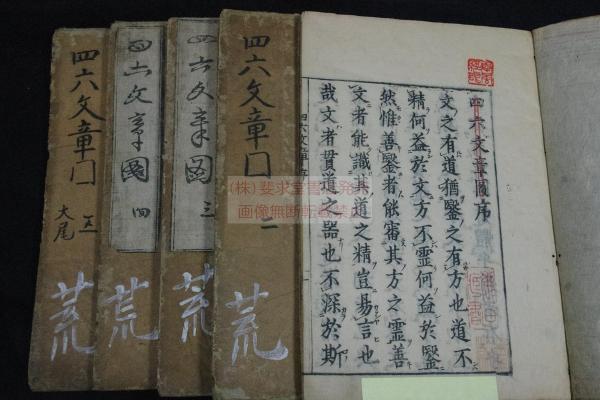 四六文章圖序
文之有道猶毉之有方也道不
精何益於文方不靈何益於毉
然惟善毉者能審其方之靈善
文者能識其道之精豈易言也
哉文者貫道之器也不深於斯
四六文章
二
荒
四六文章圖
三
荒
四六文章圖
四
荒
四六文章
五
大尾
荒
(株)斐求堂書
画像無断転載禁止